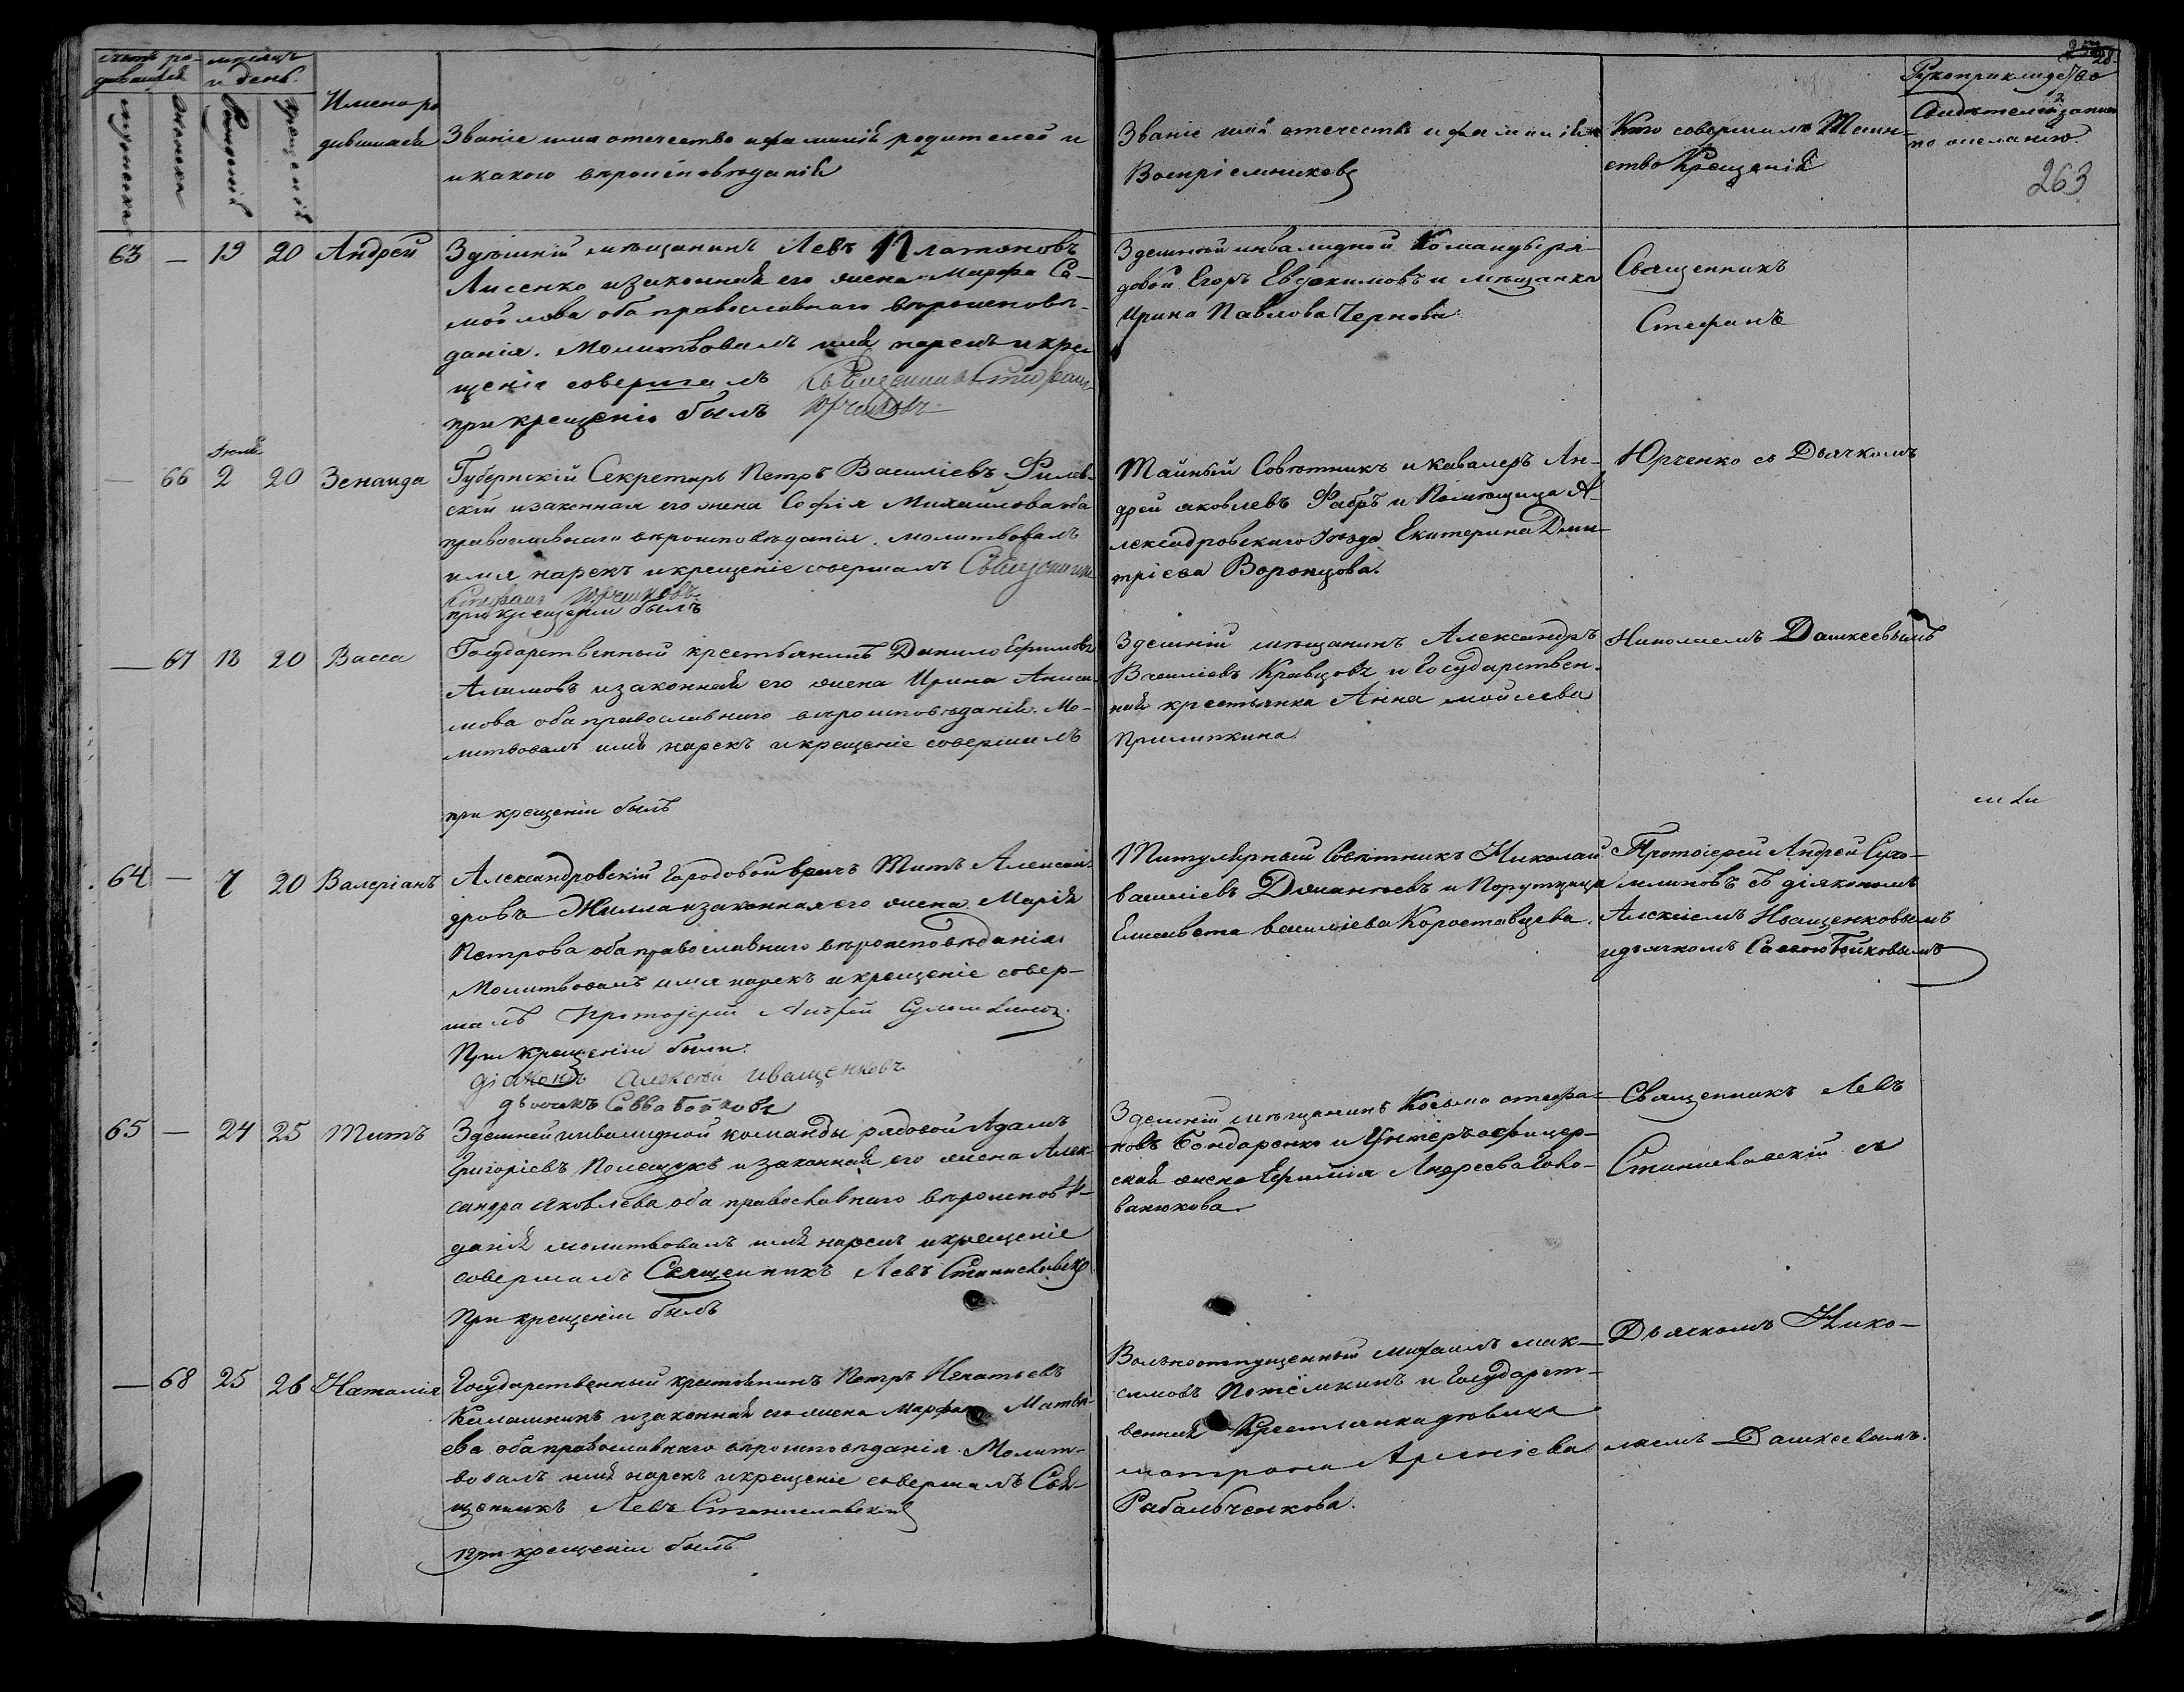 Счетъ ро-
дившихся
мѣсяцъ
и день.
мужеска
женска
Рожденія
крещенія
Имена ро
дившихся
Званіе имя отечество и фамилія родителей и
и какого вѣроисповѣданія
Званіе имя отечество и фамилія
Воспріемниковъ
Кто совершалъ Таин-
ство Крещенія
Рукоприкладство
Свидѣтелей записи
по желанію.
28
263
63 — 19 20 Андрей
Здѣшній мѣщанинъ Левъ Платоновъ
Лисенко и законная его жена Марфа Са-
мойлова оба православнаго вѣроисповѣ-
данія. Молитвовалъ имя нарекъ и кре
щеніе совершалъ Священникъ Стефанъ
Юрченковъ
при крещеніи былъ
Здешней инвалидной Команды ря-
довой Егоръ Евдокимовъ и мѣщанка
Ирина Павлова Чернова
Священникъ
Стефанъ
— 66 Іюля 2 20 Зенаида
Губернскій Секретарь Петръ Василіевъ Филев-
скій и законная его жена Софія Михайлова оба
православнаго вѣроисповѣданія. молитвовалъ
имя нарекъ и крещеніе совершалъ Священникъ
Стефанъ Юрченковъ
при крещеніи былъ
Тайный Совѣтникъ и кавалеръ Ан-
дрей яковлевъ Фабръ и Помѣщица А-
лександровскаго Уѣзда Екатерина Дми-
тріева Воронцова.
Юрченко съ Дьячкомъ
— 67 18 20 Васса
Государственный крестьянинъ Данило Ефимовъ
Алимовъ и законная его жена Ирина Аниси-
мова оба православнаго вѣроисповѣданія. Мо-
литвовалъ имя нарекъ и крещеніе совершалъ
при крещеніи былъ
Здешній мѣщанинъ Александръ
Василіевъ Кравцовъ и Государствен-
ная крестьянка Анна мойсеева
Прилипкина.
Николаемъ Дашкеевымъ
64 — 7 20 Валеріанъ
Александровскій Городовой врачъ Титъ Алексан-
дровъ Жилла и законная его жена Марія
Петрова оба православнаго вѣроисповѣданія
Молитвовалъ имя нарекъ и крещеніе совер-
шалъ Протоіерей Андрей Сухомлиновъ.
При крещеніи были:
діаконъ Алексѣй Иващенковъ
дьячекъ Савва Бойковъ
Титулярный Совѣтникъ Николай
василіевъ Доментіевъ и Порутчица
Елисавета василіева Коростовцева.
Протоіерей Андрей Сухо-
млиновъ съ діякономъ
Алексіемъ Иващенковымъ
и дьячкомъ Саввою Бойковымъ
65 — 24 25 Титъ
Здешней инвалидной команды рядовой Адамъ
Григоріевъ Полещукъ и законная его жена Алек-
сандра яковлева оба православнаго вѣроисповѣ-
данія молитвовалъ имя нарекъ и крещеніе
совершалъ Священникъ Левъ Станиславскій
При крещеніи былъ
Здешній мѣщанинъ Косьма стефа-
новъ Бондаренко и Унтеръ офицер-
ская жена Ефимія Андреева Голо-
ванюкова.
Священникъ Левъ
Станиславскій съ
— 68 25 26 Наталія
Государственный крестьянинъ Петръ Игнатьевъ
Калашникъ и законная его жена Марфа Матвѣ-
ева оба православнаго вѣроисповѣданія. Молит-
вовалъ имя нарекъ и крещеніе совершалъ Свя-
щенникъ Левъ Станиславскій
При крещеніи былъ
Вольноотпущенный михаилъ мак-
симовъ Потёмкинъ и Государст-
венная Крестьянка дѣвица
матрона Арсніева
Рибальченкова.
Дьячкомъ Нико-
лаемъ Дашкеевымъ.